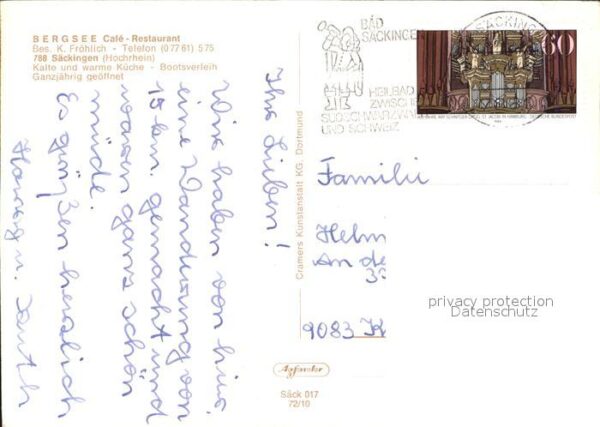 BERGSEE Café - Restaurant
Bes. K. Fröhlich - Telefon (0 77 61) 5 75
788 Säckingen (Hochrhein)
Kalte und warme Küche - Bootsverleih
Ganzjährig geöffnet
Ihr Lieben!
Wir haben von hier
eine Wanderung von
15 km. gemacht und
waren ganz schön
müde.
Es grüßen herzlich
u.
Cramers Kunstanstalt KG. Dortmund
BAD
SÄCKINGEN
HEILBAD
ZWISCHEN
SÜDSCHWARZWALD
UND SCHWEIZ
SÄCKINGEN
60
DEUTSCHE BUNDESPOST
Familie
Helm
An de
9083 K
privacy protection
Datenschutz
Säck 017
72/10